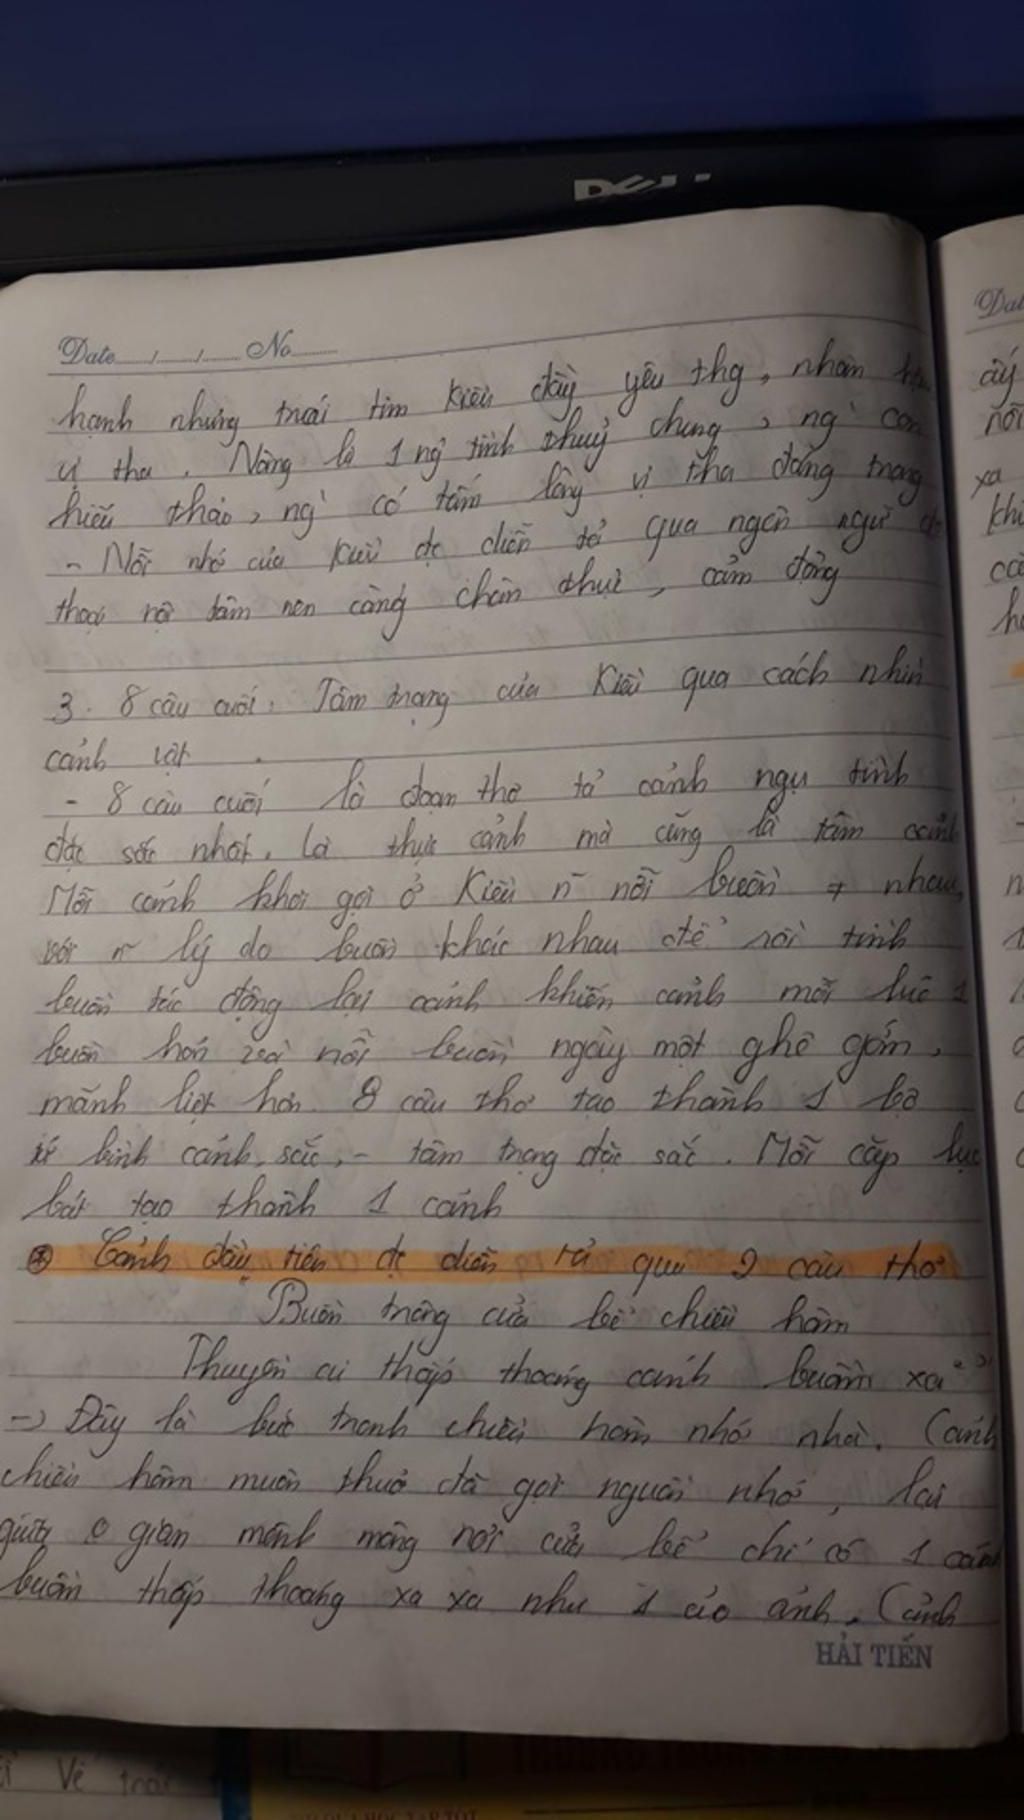 DELL
Date / / No
hạnh nhưng trái tim Kiều đầy yêu thg, nhân
vị tha. Nàng là 1 ng tình thuỷ chung, ng con
hiếu thảo, ng có tấm lòng vị tha đáng trọng
- Nỗi nhớ của Kiều đc diễn tả qua ngôn ngữ
thoại nội tâm nên càng chân thực, cảm động
3. 8 câu cuối: Tâm trạng của Kiều qua cách nhìn
cảnh vật.
- 8 câu cuối là đoạn thơ tả cảnh ngụ tình
đặc sắc nhất. Là thực cảnh mà cũng là tâm cảnh
Mỗi cảnh khơi gợi ở Kiều n~ nỗi buồn ≠ nhau,
với n~ lý do buồn khác nhau để rồi tình
buồn tác động lại cảnh khiến cảnh mỗi lúc 1
buồn hơn và nỗi buồn ngày một ghê gớm,
mãnh liệt hơn. 8 câu thơ tạo thành 1 bộ
tứ bình cảnh sắc, - tâm trạng đặc sắc. Mỗi cặp lục
bát tạo thành 1 cảnh
* Cảnh đầu tiên đc diễn tả qua 2 câu thơ
"Buồn trông cửa bể chiều hôm
Thuyền ai thấp thoáng cánh buồm xa"
-> Đây là bức tranh chiều hôm nhớ nhà. Cảnh
chiều hôm muôn thuở đã gợi người nhớ, lại
giữa 0 gian mênh mông nơi cửa bể chỉ có 1 cánh
buồm thấp thoáng xa xa như 1 ảo ảnh. Cảnh
HẢI TIẾN
Dat
ấy
nỗi
xa
khi
Vẽ